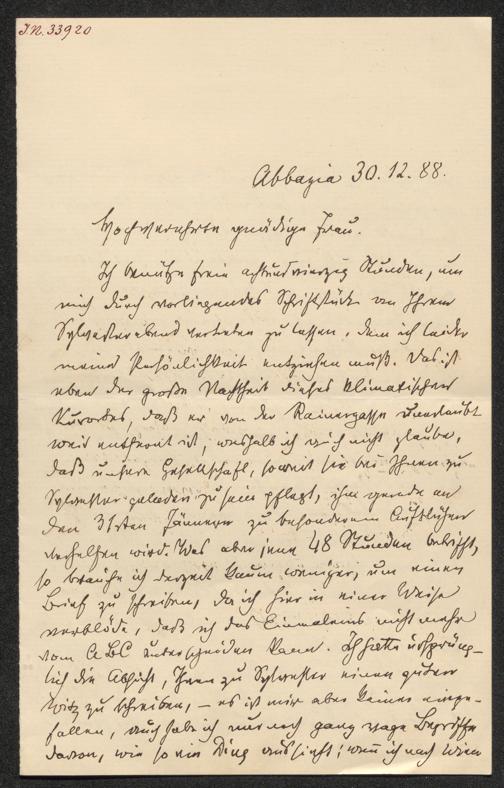 J.N. 33920
Abbazia 30.12.88.
Hochverehrte gnädige Frau.
Ich benutze freie achtundvierzig Stunden, um
mich durch vorliegendes Schriftstück an Ihrem
Sylvesterabend vertreten zu lassen, dem ich leider
meine Persönlichkeit entziehen muß. Das ist
eben der große Nachtheil dieses klimatischen
Kurortes, daß er von der Rainergasse unerlaubt
weit entfernt ist, weshalb ich auch nicht glaube,
daß unsere Gesellschaft, soweit sie bei Ihnen zu
Sylvester geladen zu sein pflegt, ihm gerade an
den 31sten Jänner zu besonderem Aufblühen
verhelfen wird. Was aber jene 48 Stunden betrifft,
so brauche ich derzeit kaum weniger, um einen
Brief zu schreiben, da ich hier in einer Weise
verblöde, daß ich das Einmaleins nicht mehr
vom ABC unterscheiden kann. Ich hatte ursprüng-
lich die Absicht, Ihnen zu Sylvester einen guten
Witz zu schreiben, – es ist mir aber keiner einge-
fallen, auch habe ich nur noch ganz vage Begriffe
davon, wie so ein Ding aussieht; wenn ich nach Wien